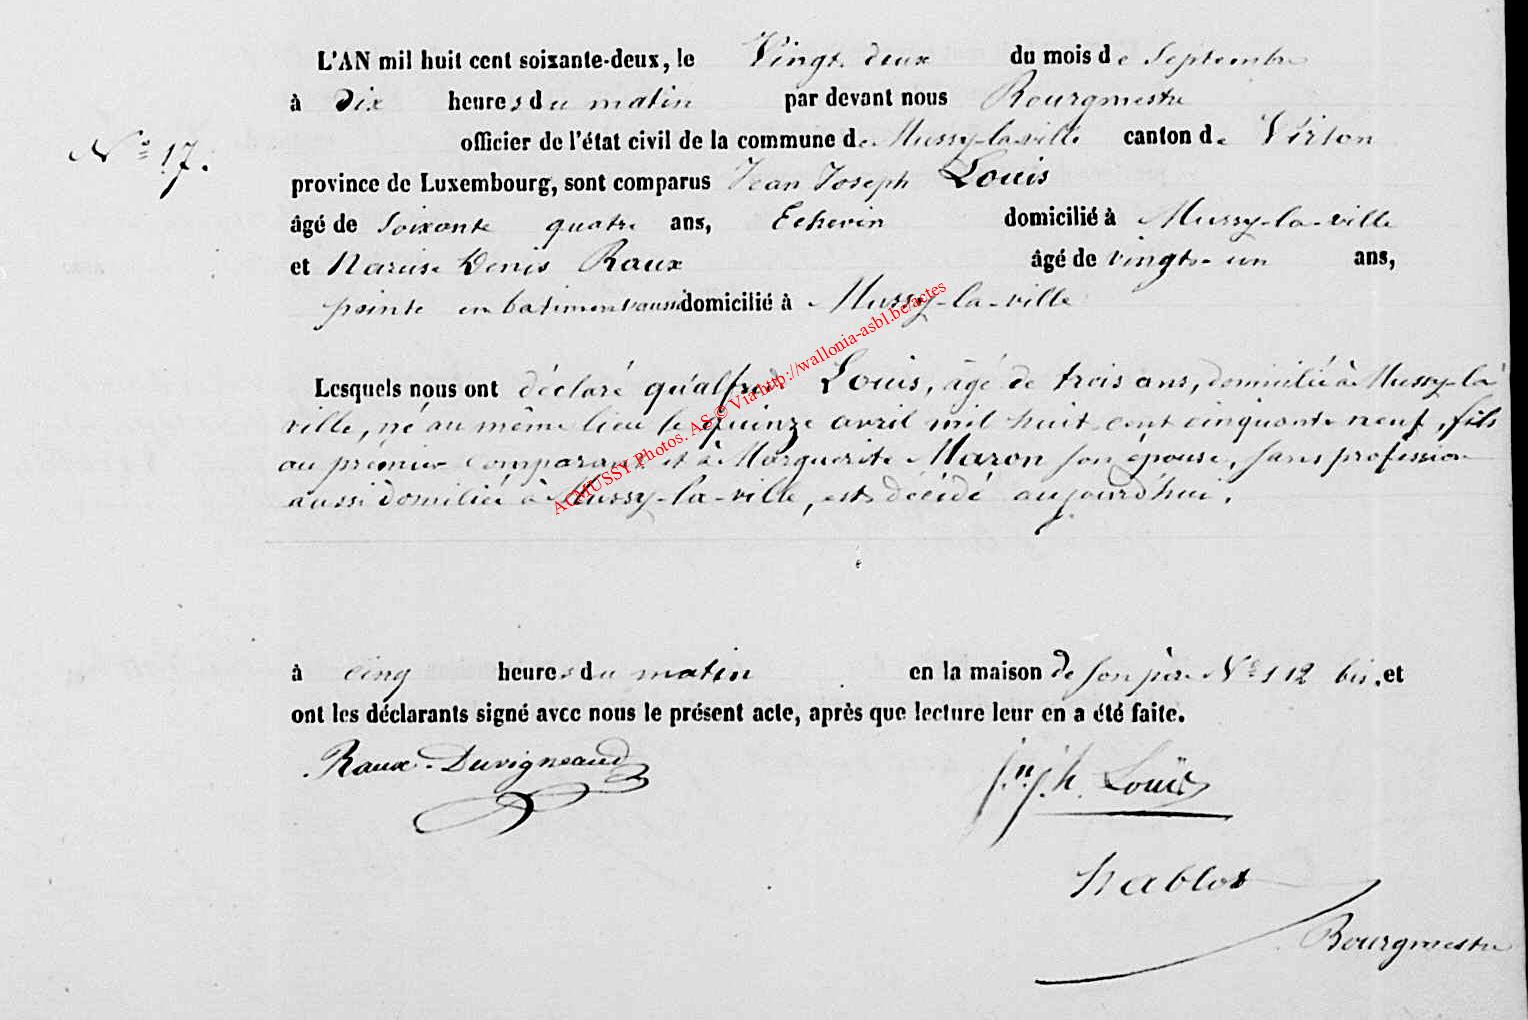 L'AN mil huit cent soixante-deux, le Vingt deux du mois de Septembre
à Dix heures du matin par devant nous Bourgmestre
officier de l'état civil de la commune de Mussy-la-ville canton de Virton
N° 17.
province de Luxembourg, sont comparus Jean Joseph Louis
âgé de Soixante quatre ans, Echevin domicilié à Mussy-la-ville
et Narcisse Denis Raux âgé de vingt-un ans,
peintre en batiment aussi domicilié à Mussy-la-ville
Lesquels nous ont déclaré qu'alfred Louis, âgé de trois ans, domicilié à Mussy-la
ville, né au même lieu le quinze avril mil huit cent cinquante neuf, fils
au premier comparant et à Marguerite Maron son épouse, sans profession
aussi domiciliée à Mussy-la-ville, est décédé aujourd'hui.
à cinq heures du matin en la maison de son père N° 112 bis. et
ont les déclarants signé avec nous le présent acte, après que lecture leur en a été faite.
Raux-Duvigneaud
Jn Jh. Louis
Bourgmestre
ACMUSSY Photos. AS © Via http://wallonia-asbl.be/actes